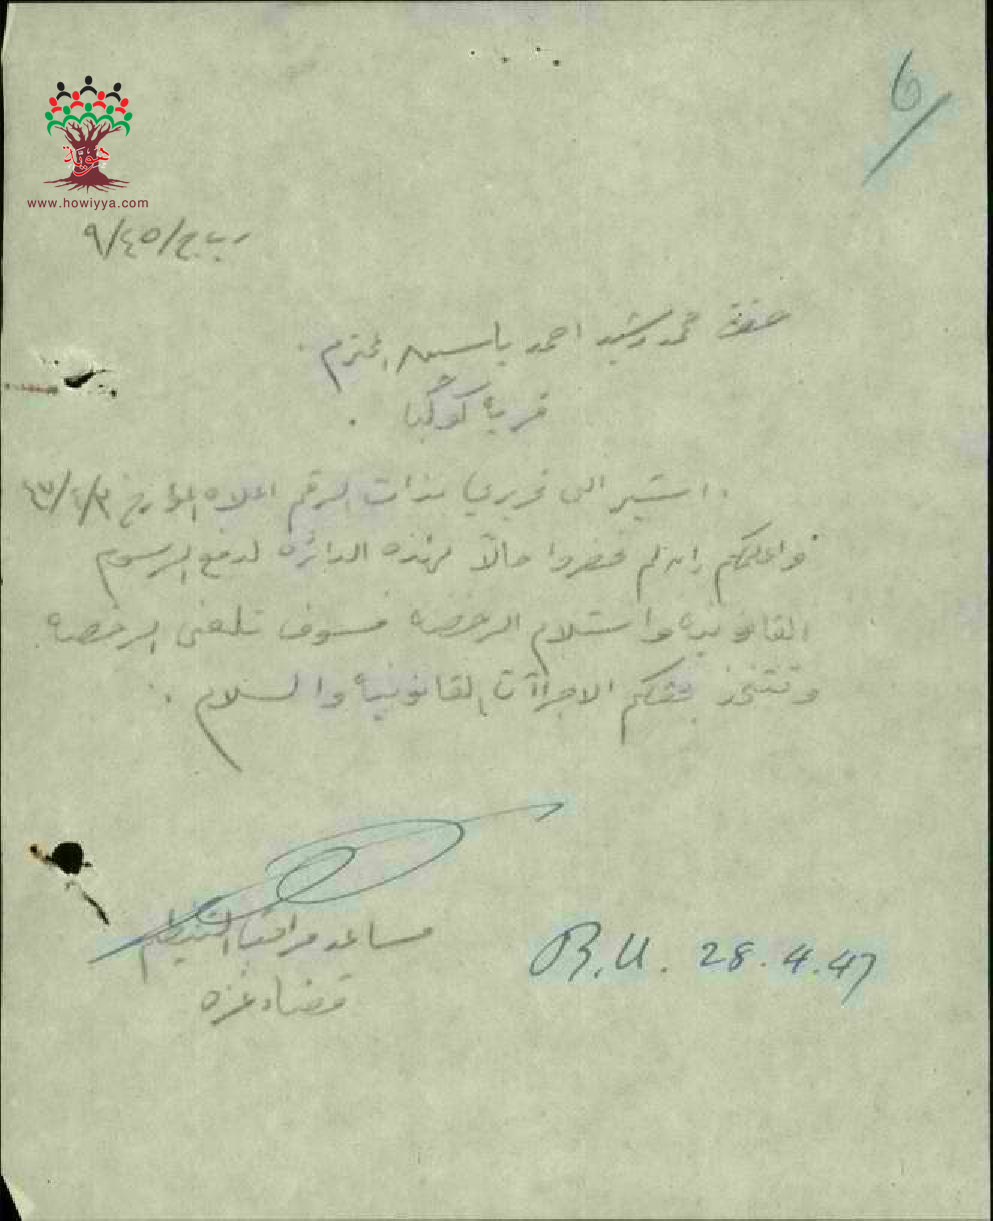 6/
هوية
www.howiyya.com
ر ب ج/٤٥/٩
حضرة محمد رشيد احمد ياسين المحترم
قرية كوكبا .
اشير الى تحريري بذات الرقم اعلاه المؤرخ
واعلمكم إن لم تحضروا حالاً لهذه الدائرة لدفع الرسوم
القانونيه واستلام الرخصه فسوف تلغى الرخصه
وتتخذ بحقكم الاجراآت القانونية والسلام .
مساعد مراقب التنظيم
قضاء غزه
B.U. 28.4.47